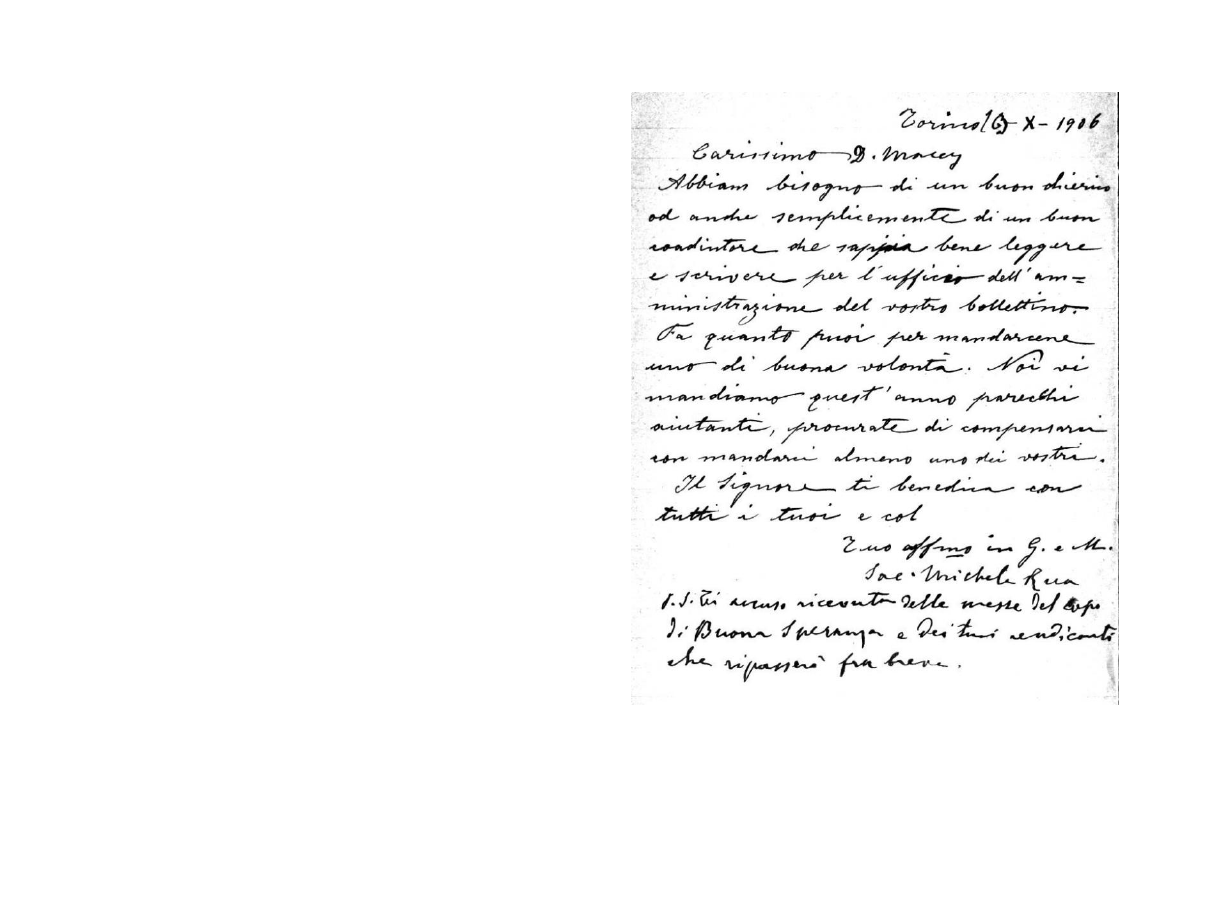 Torino 16 X - 1906
Carissimo D. Macey
Abbiam bisogno di un buon chierico
od anche semplicemente di un buon
coadiutore che sappia bene leggere
e scrivere per l'ufficio dell'am=
ministrazione del vostro bollettino.
Fa quanto puoi per mandarcene
uno di buona volontà. Noi vi
mandiamo quest'anno parecchi
aiutanti, procurate di compensarci
con mandarci almeno uno dei vostri.
Il Signore ti benedica con
tutti i tuoi e col
Tuo affmo in G. e M.
Sac. Michele Rua
P.S. Ti accuso ricevuta delle messe del capo
di Buona Speranza e dei tuoi rendiconti
che ripasserò fra breve.